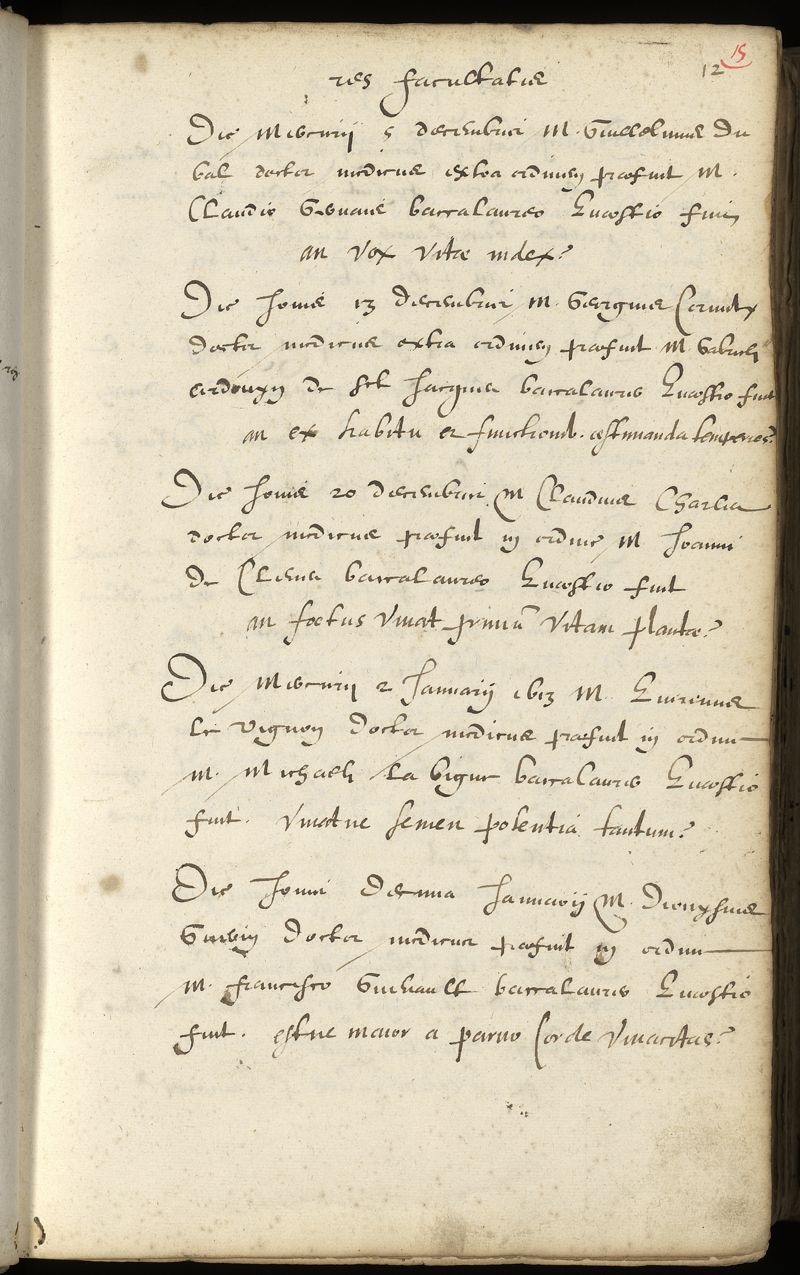 15
12
res facultatis
Die Mercurij 5 decembris M. Guillelmus Du
val doctor medicus extra ordinem præfuit M.
Claudio Baccalaureo Quæstio fuit
an vox vitæ index?
Die Jovis 13 decembris M. Georgius Cornuty
doctor medicus extra ordinem præfuit M Gabrieli
de Jacques baccalaureo Quæstio fuit
an ex habitu et functionib. æstimanda temperies?
Die Jovis 20 decembris M Claudius Charles
doctor medicus præfuit in ordine M Joanni
De baccalaureo Quæstio fuit
an foetus vivat primū vitam plantæ?
Die Mercurij 2 Januarij 1613 M.
le vignon doctor medicus præfuit in ordine
M. Michaeli La vigne baccalaureo Quæstio
fuit. vivatne semen potentia tantum?
Die Jovis decima Januarij M. Dionysius
Guerin Doctor medicus præfuit in ordine
M. francisco Guenault baccalaureo Quæstio
fuit. estne maior a parvo corde vivacitas?